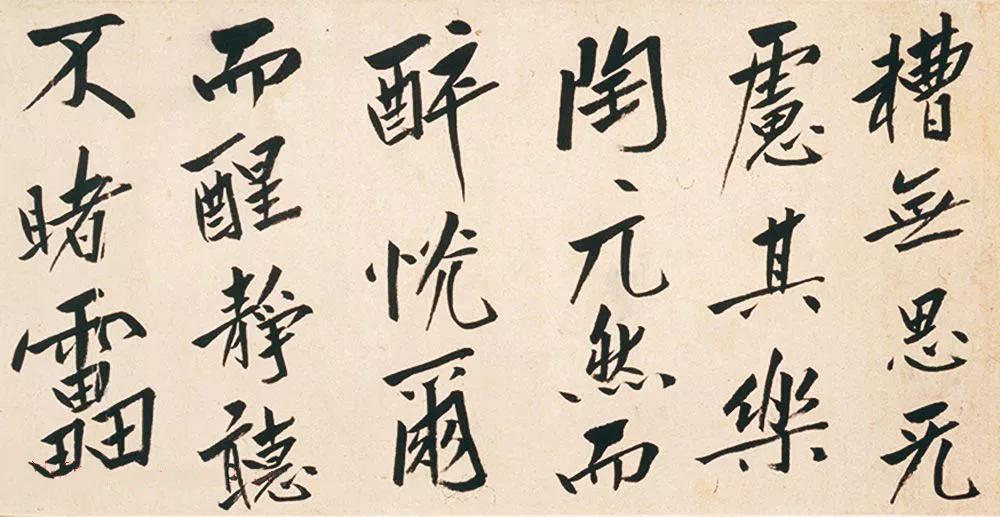 槽無思无
慮其樂
陶〻兀然而
醉恍爾
而醒靜聽
不睹靁